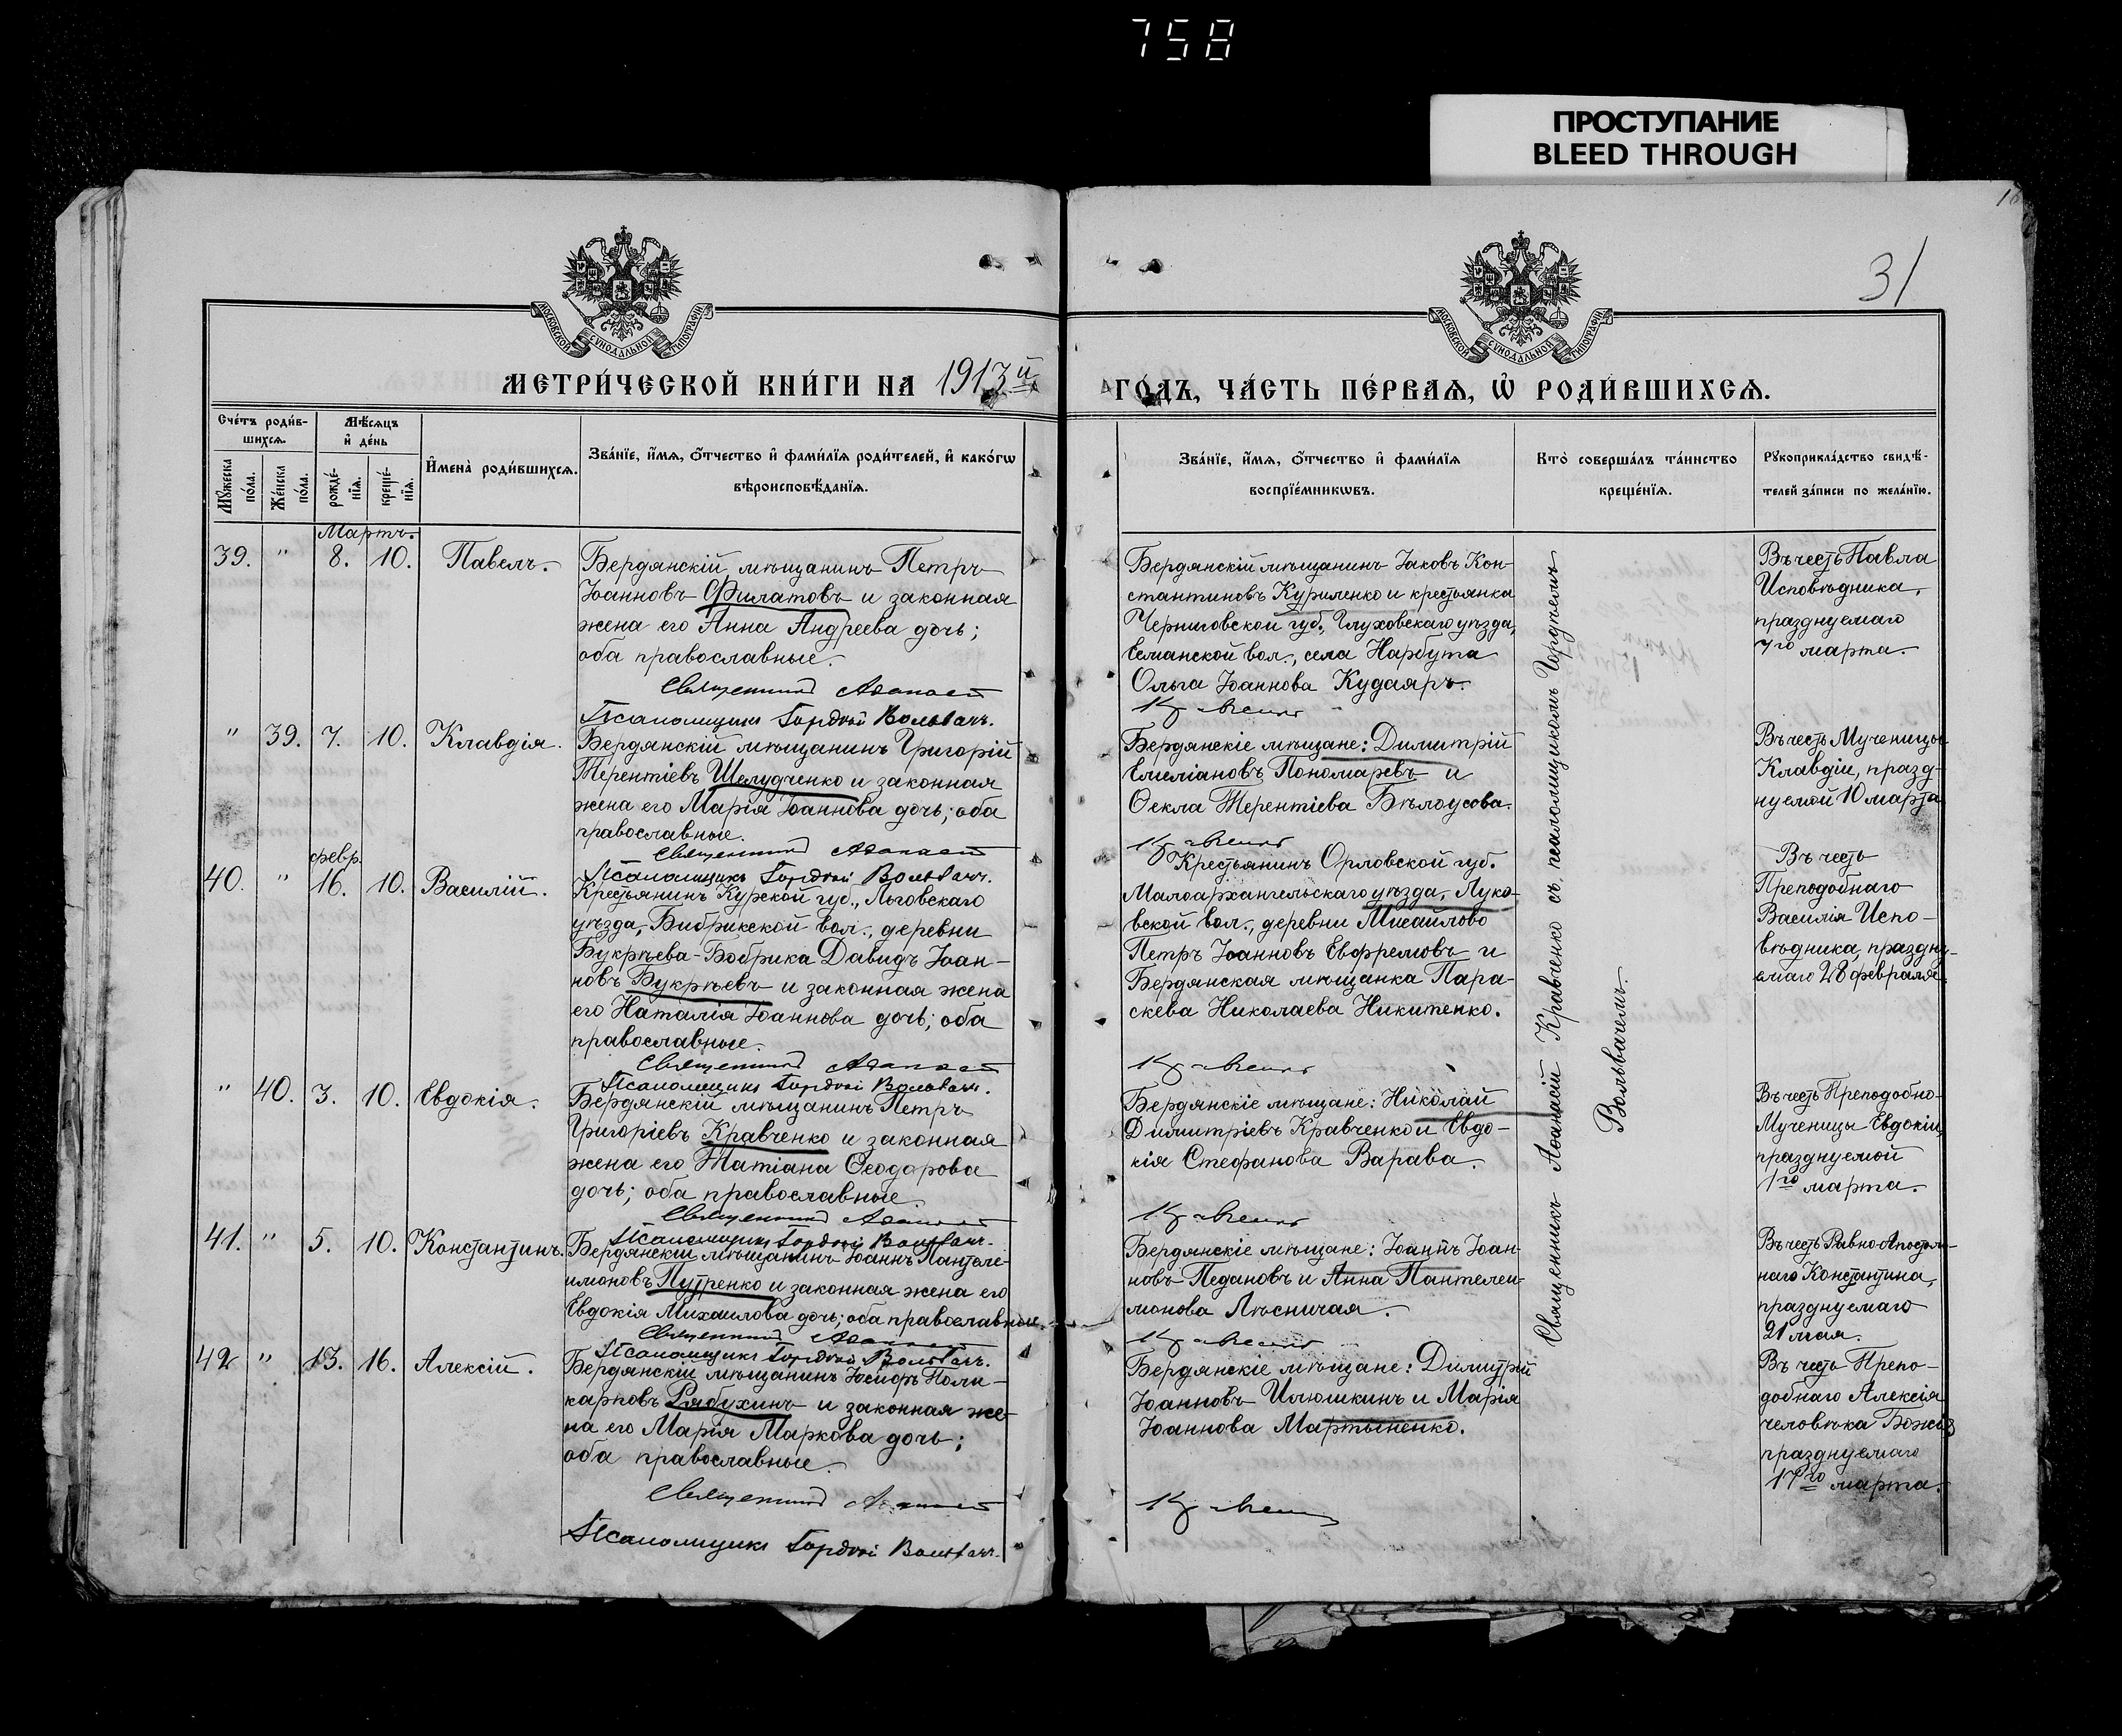 758
ПРОСТУПАНИЕ
BLEED THROUGH
31
МОСКОВСКОЙ СѴНОДАЛЬНОЙ ТИПОГРАФІИ
МОСКОВСКОЙ СѴНОДАЛЬНОЙ ТИПОГРАФІИ
МЕТРИ́ЧЕСКОЙ КНИ́ГИ НА 1913й
ГО́ДЪ, ЧА́СТЬ ПЕ́РВАѦ, Ѡ҆ РОДИ́ВШИХСѦ.
Сче́тъ роди́в-
шихсѧ.
Мѣ́сѧцъ
и҆ де́нь
Мꙋжеска по́ла.
Же́нска по́ла.
рожде́-
нїѧ.
креще́-
нїѧ.
И҆мена̀ роди́вшихсѧ.
Зва́нїе, и҆́мѧ, ѻ҆́тчество и҆ фами́лїѧ роди́телей, и҆ како́гѡ
вѣроисповѣ́данїѧ.
Зва́нїе, и҆́мѧ, ѻ҆́тчество и҆ фами́лїѧ
воспрїе́мникѡвъ.
Кто̀ соверша́лъ та́инство
креще́нїѧ.
Рꙋкоприкла́дство свидѣ́-
телей за́писи по жела́нїю.
Мартъ.
39. " 8. 10. Павелъ.
Бердянскій мѣщанинъ Петръ
Іоанновъ Филатовъ и законная
жена его Анна Андреева дочь;
оба православные.
Священникъ Аѳанасій
Псаломщикъ Гордѣй Вольвачъ.
Бердянскій мѣщанинъ Іаковъ Кон-
стантиновъ Куриленко и крестьянка
Черниговской губ., Глуховскаго уѣзда,
Есманской вол., села Нарбута
Ольга Іоаннова Кудаяръ.
Кравченко
Въ честь Павла
Исповѣдника,
празднуемаго
7го марта.
" 39. 7. 10. Клавдія.
Бердянскій мѣщанинъ Григорій
Терентіевъ Шелудченко и законная
жена его Марія Іоаннова дочь; оба
православные.
Священникъ Аѳанасій
Псаломщикъ Гордѣй Вольвачъ.
Бердянскіе мѣщане: Димитрій
Емеліановъ Пономаревъ и
Ѳекла Терентіева Бѣлоусова.
Кравченко
Въ честь Мученицы
Клавдіи, празд-
нуемой 10 марта
февр.
40. " 16. 10. Василій.
Крестьянинъ Курской губ., Льговскаго
уѣзда, Бибрикской вол., деревни
Букрѣева-Бобрика Давидъ Іоан-
новъ Букрѣевъ и законная жена
его Наталія Іоаннова дочь; оба
православные.
Священникъ Аѳанасій
Псаломщикъ Гордѣй Вольвачъ.
Крестьянинъ Орловской губ.
Малоархангельскаго уѣзда, Луко-
вской вол., деревни Михайлово
Петръ Іоанновъ Евфремовъ и
Бердянская мѣщанка Пара-
скева Николаева Никитенко.
Кравченко
Въ честь
Преподобнаго
Василія Испо-
вѣдника, праздну-
емаго 28 февраля.
" 40. 3. 10. Евдокія.
Бердянскій мѣщанинъ Петръ
Григоріевъ Кравченко и законная
жена его Татіана Ѳеодорова
дочь; оба православные
Священникъ Аѳанасій
Псаломщикъ Гордѣй Вольвачъ.
Бердянскіе мѣщане: Николай
Димитріевъ Кравченко и Евдо-
кія Стефанова Варава.
Кравченко
Въ честь Преподобно-
Мученицы Евдокіи,
празднуемой
1го марта.
41. " 5. 10. Константинъ.
Бердянскій мѣщанинъ Іоаннъ Пантеле-
имоновъ Путренко и законная жена его
Евдокія Михаилова дочь; оба православные.
Священникъ Аѳанасій
Псаломщикъ Гордѣй Вольвачъ.
Бердянскіе мѣщане: Іоаннъ Іоан-
новъ Педановъ и Анна Пантелеи-
монова Лѣсничая.
Кравченко
Въ честь Равно-Апостоль-
наго Константина,
празднуемаго
21 мая.
42 " 13. 16. Алексій.
Бердянскій мѣщанинъ Іосифъ Поли-
карповъ Рябухинъ и законная же-
на его Марія Маркова дочь;
оба православные.
Священникъ Аѳанасій
Псаломщикъ Гордѣй Вольвачъ.
Бердянскіе мѣщане: Димитрій
Іоанновъ Илюшкинъ и Марія
Іоаннова Мартыненко.
Кравченко
Въ честь Препо-
добнаго Алексія
человѣка Божія
празднуемаго
17го марта.
Священникъ Аѳанасій Кравченко съ псаломщикомъ Гордѣемъ
Вольвачемъ.